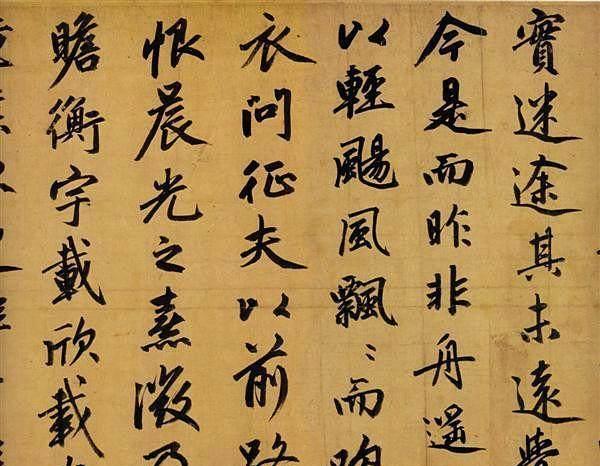 實迷途其未遠覺
今是而昨非舟遙
以輕颺風飄〻而吹
衣問征夫以前路
恨晨光之熹微乃
瞻衡宇載欣載